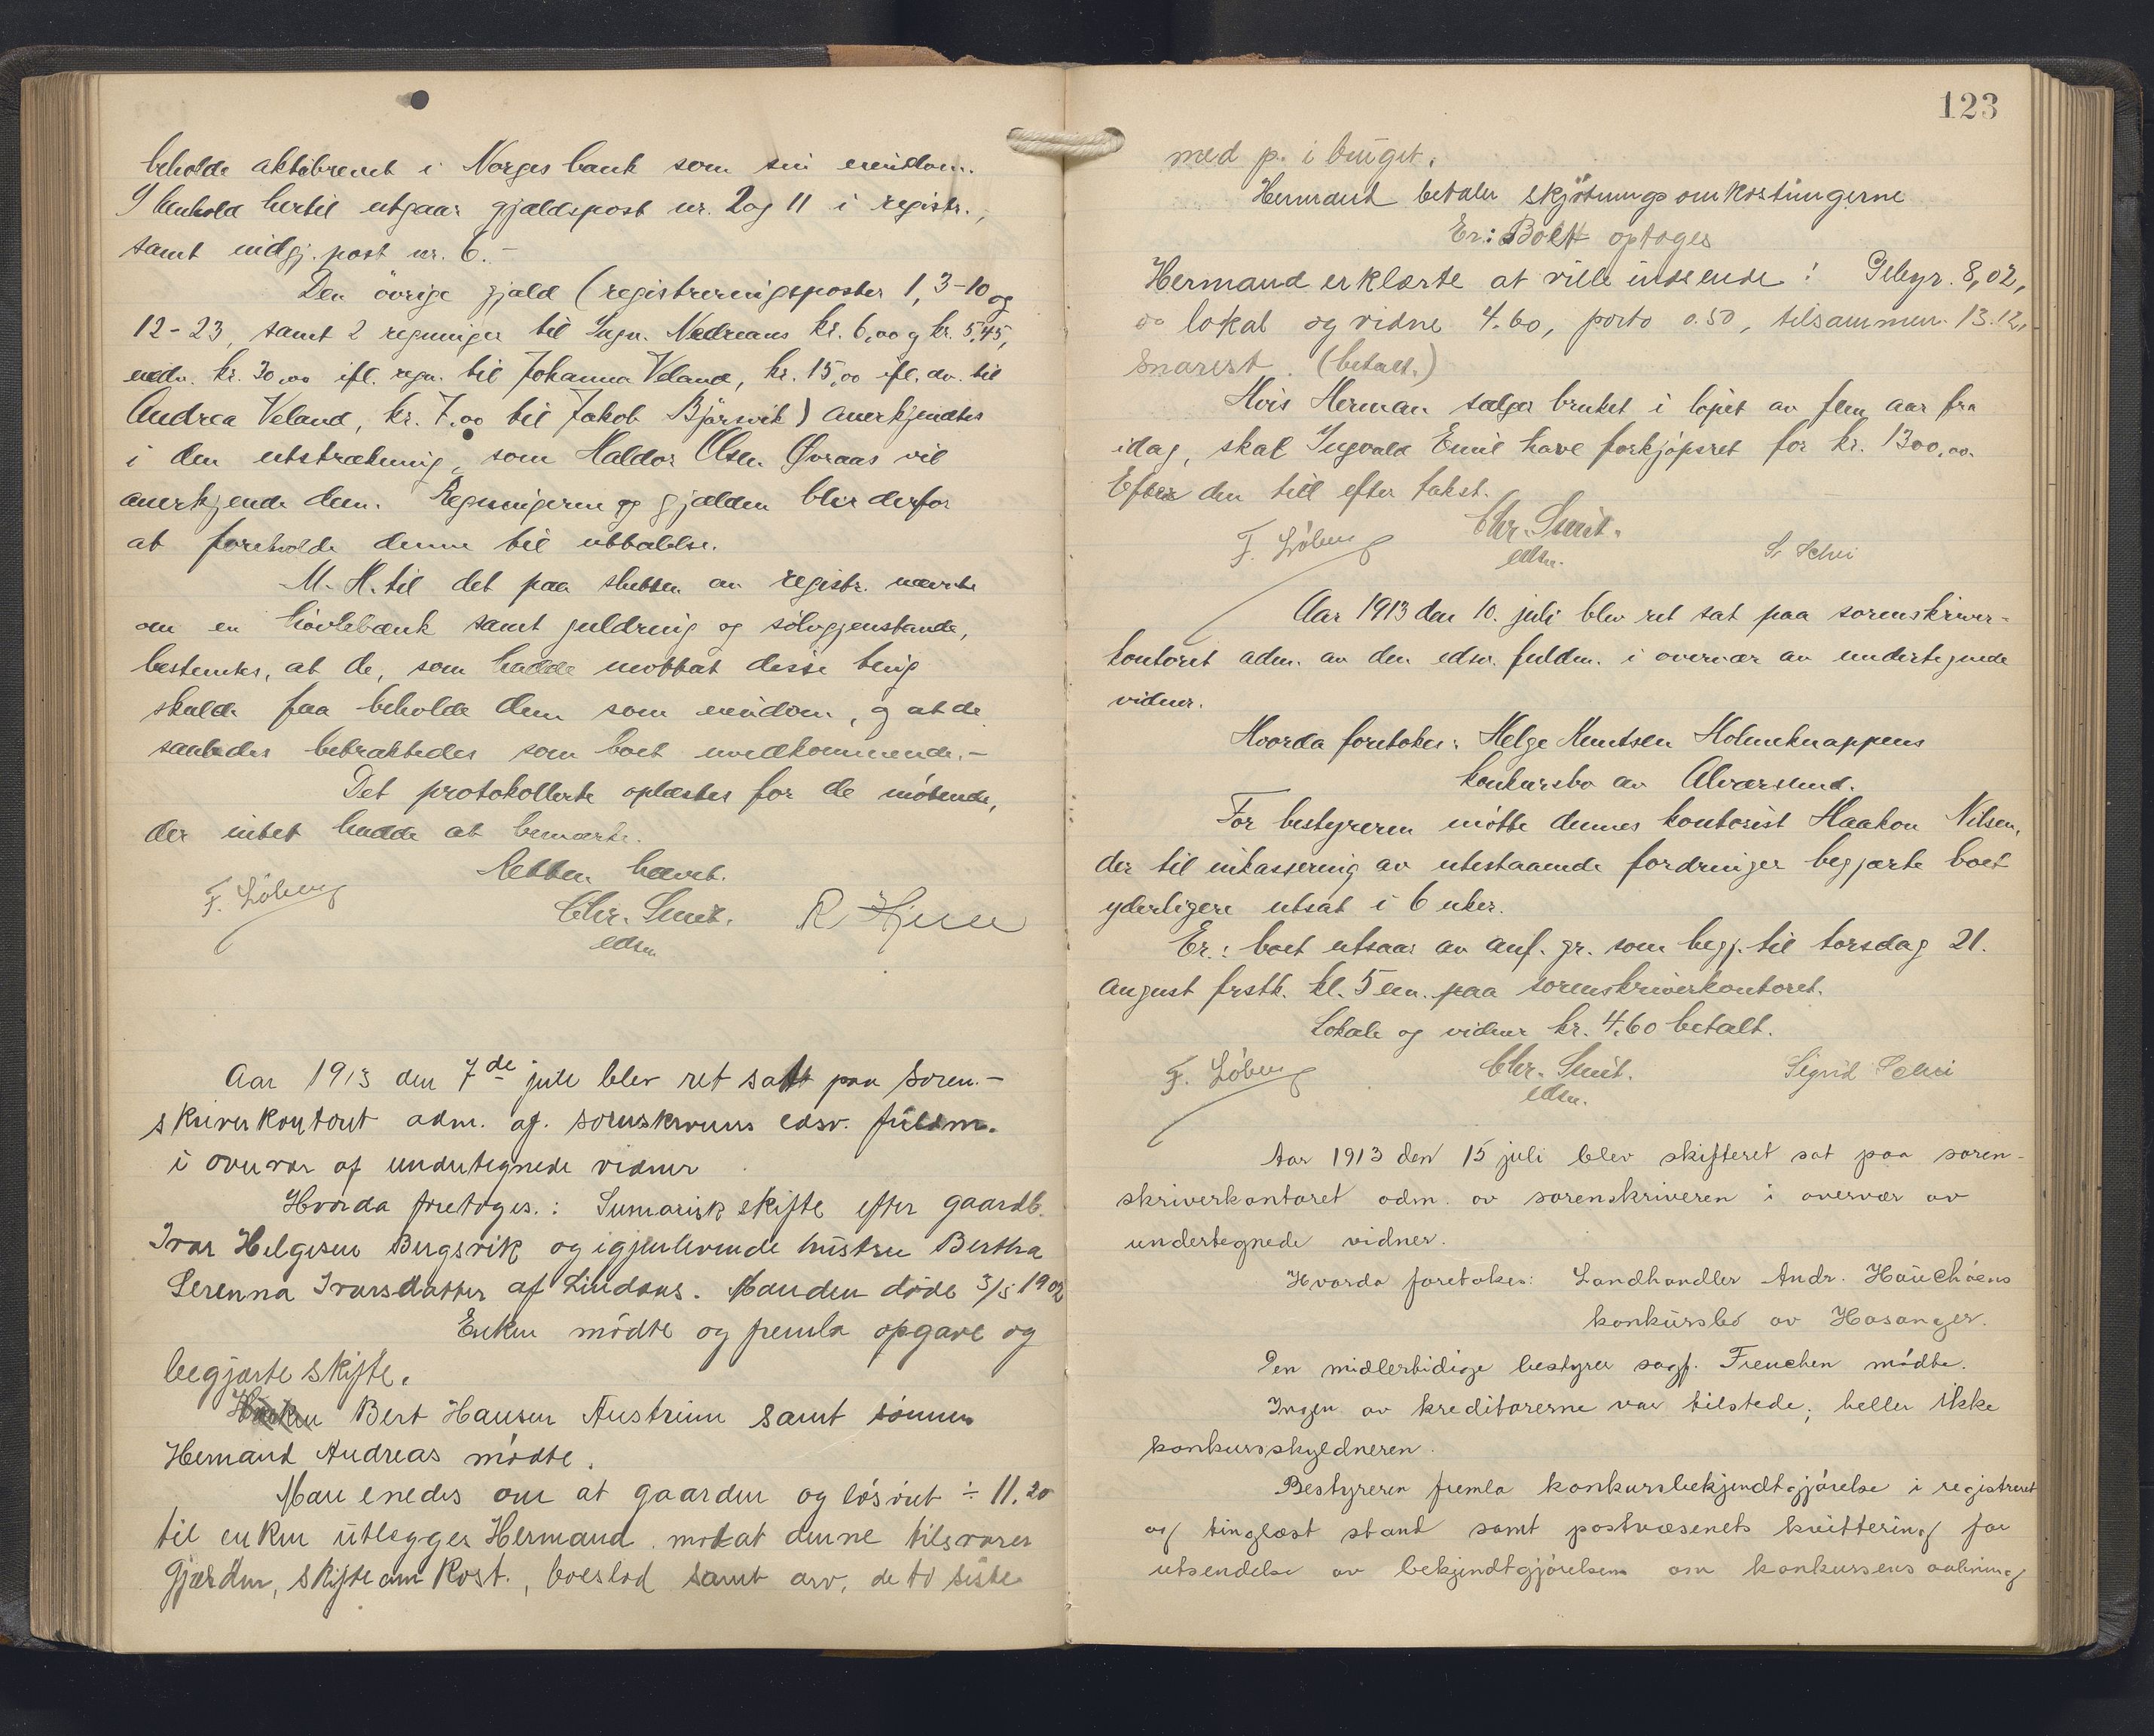 beholde aktiebrevet i Norges bank som sin eiendom.
I henhold hertil utgaar gjældspost nr. 2 og 11 i registr.,
samt indgj. post nr. 6.-
Den övrige gjæld (registreringsposter 1, 3-10 og
12-23, samt 2 regninger til Ingv. Nedreaas kr. 6,00 og kr. 5,45,
endv. kr. 30,00 ifl. regn. til Johanna Veland, kr. 15,00 ifl. do. til
Andrea Veland, kr. 7,00 til Jakob Bjørsvik) anerkjendtes
i den utstrækning, som Haldor Olsen Øvraas vil
anerkjende dem. Regningerne og gjælden blir derfor
at foreholde denne til uttalelse.
M. H. til det paa slutten av registr. nævnte
om en høvlebænk samt guldring og sølvgjenstande,
bestemtes, at de, som hadde mottat disse ting
skulde faa beholde dem som eiendom, og at de
saaledes betraktedes som boet uvedkommende.-
Det protokollerte oplæstes for de møtende,
der intet hadde at bemærke.
Retten hævet.
F. Löberg Chr. Smit. R Hjelle
edsv.
Aar 1913 den 7de juli blev ret satt paa soren-
skriverkontoret adm. af. sorenskriverens edsv. fuldm.
i overvær af undertegnede vidner
Hvorda foretoges.: Sumarisk skifte efter gaardb.
Ivar Helgesen Bergsvik og igjenlevende hustru Bertha
Serenna Ivarsdatter af Lindaas. Manden döde 3/5 1902
Enken mödte og fremla opgave og
begjærte skifte.
Bert Hansen Austreim samt sönnen
Hermand Andreas mödte.
Man enedes om at gaarden og lösöret ÷ 11.20
til enken utlegges Hermand motat denne tilsvarer
Gjælden, skifteomkost., boeslod samt arv, de to siste
123
med p. i bruget.
Hermand betaler skjötningsomkostningerne
Er: Bolt optoges
Hermand erklærte at ville indsende: Gebyr. 8,02,
lokal og vidne 4.60, porto 0.50, tilsammen 13.12,
snarest. (betalt.)
Hvis Herman sælger bruket i løpet av fem aar fra
idag, skal Ingvald Emil have forkjøpsret for kr. 1300,00.
Efter den tid efter takst.
F. Löberg Chr. Smit. S. Schei
edsv.
Aar 1913 den 10. juli blev ret sat paa sorenskriver-
kontoret adm. av den edsv. fuldm. i overvær av undertegnede
vidner.
Hvorda foretokes: Helge Knutsen Holmeknappens
konkursbo av Alversund.
For bestyreren møtte dennes kontorist Haakon Nilsen,
der til inkassering av utestaaende fordringer begjærte boet
yderligere utsat i 6 uker.
Er.: boet utsaas av anf. gr. som begj. til torsdag 21.
august frstk. kl. 5 em. paa sorenskriverkontoret.
Lokale og vidner kr. 4.60 betalt.
F. Löberg Chr. Smit. Sigrid Schei
edsv.
Aar 1913 den 15 juli blev skifteret sat paa soren-
skriverkontoret adm. av sorenskriveren i overvær av
undertegnede vidner.
Hvorda foretokes: Landhandler Andr. Haukåens
konkursbo av Hosanger.
Den midlertidige bestyrer sagf. Freuchen mödte.
Ingen av kreditorerne var tilstede; heller ikke
konkursskyldneren.
Bestyreren fremla konkursbekjendtgjörelse i registreret
og tinglæst stand samt postvæsenets kvittering for
utsendelse av bekjendtgjörelsen om konkursens aabning